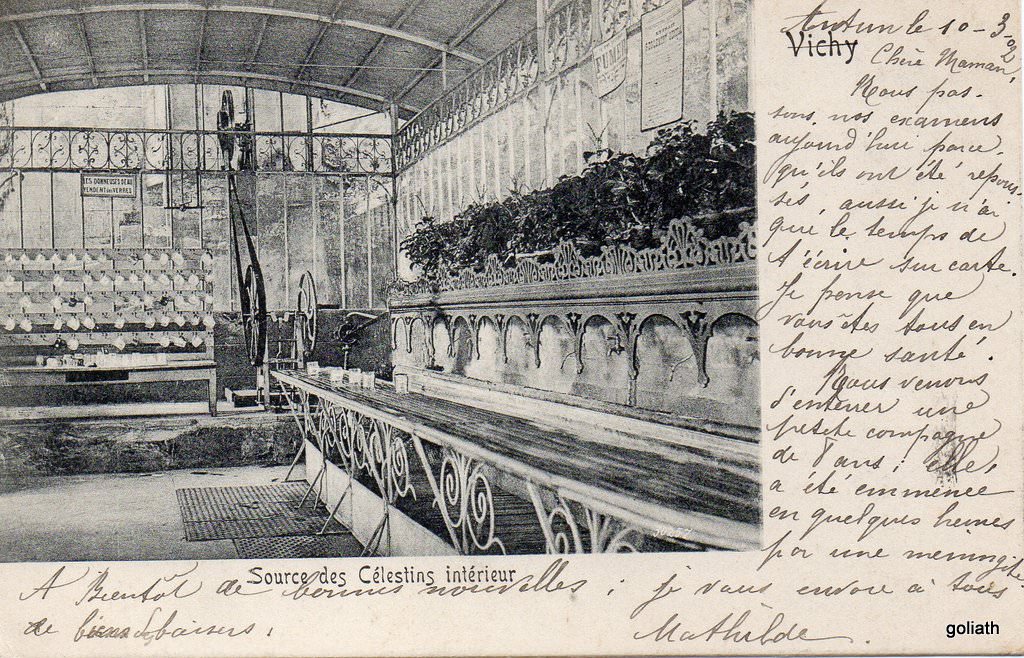 Autun le 10-3-02
Vichy
Chère Maman,
Nous pas-
sons nos examens
aujourd'hui parce
qu'ils ont été repous-
sés, aussi je n'ai
que le temps de
t'écrire sur carte.
Je pense que
vous êtes tous en
bonne santé.
Nous venons
d'enterrer une
petite compagne
de 8 ans ; elle,
a été emmenée
en quelques heures
par une méningite
FUMER
LES DONNEUSES D'EAU
VENDENT DES VERRES
Source des Célestins intérieur
A Bientôt de bonnes nouvelles ; je vous envoie à tous
de bons baisers.
Mathilde.
goliath